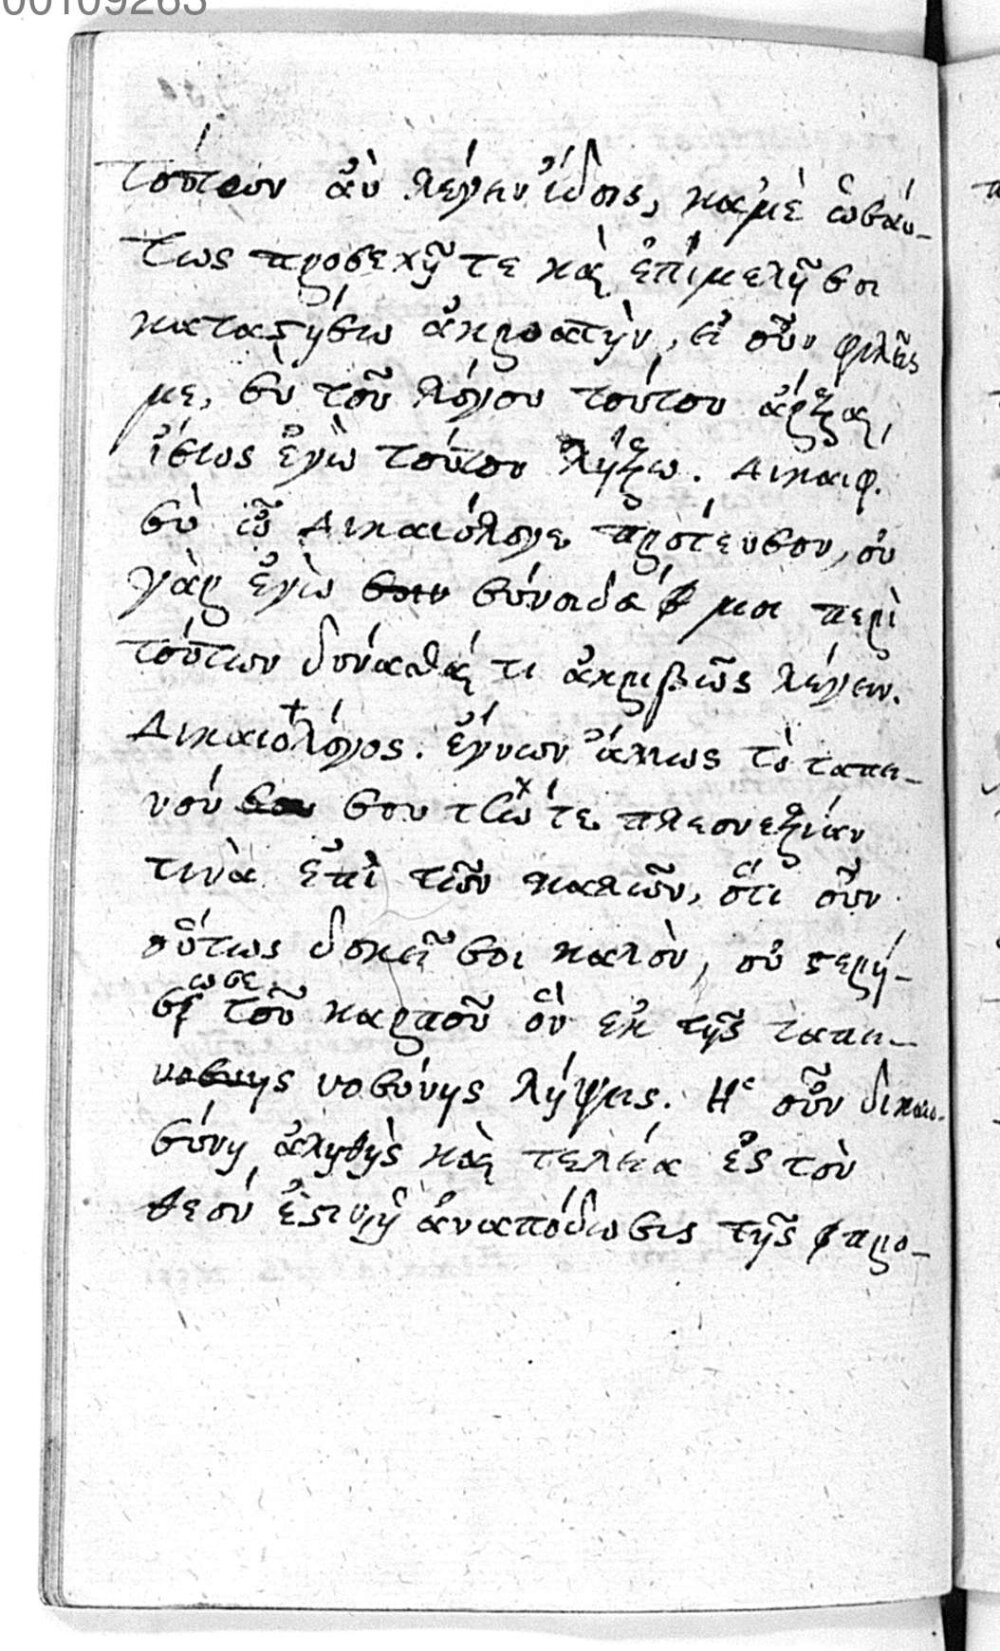 00109263
τούτων ἂν λέγειν εἴδοις, καμὲ ὡσαύ-
τως προσεχῆ τε καὶ ἐπιμελῆ σοι
καταστήσω ἀκροατὴν, εἰ οὖν φιλεῖς
με, σὺ τοῦ λόγου τούτου ἄρξαι,
ἴσως ἐγὼ τούτου λήξω. Δικαιφ.
σὺ ὦ Δικαιόλογε πρότευσον, οὐ
γὰρ ἐγὼ σύνοιδά μοι περὶ
τούτων δύνασθαί τι ἀκριβῶς λέγειν.
Δικαιολόγος. ἔγνων ἄλλως τὸ ταπει-
νόν σου τε πλεονεξίαν
τινὰ ἐπὶ τῶν καλῶν, ὅτι οὖν
οὕτως δοκεῖ σοι καλὸν, οὐ στερή-
σωσε τοῦ καρποῦ ὃν ἐκ τῆς ταπει-
νοσύνης λήψεις. Ἡ οὖν δικαιο-
σύνη ἀληθὴς καὶ τελεία ἐς τὸν
θεόν ἐστιν ἡ ἀναπόδωσις τῆς παρο-